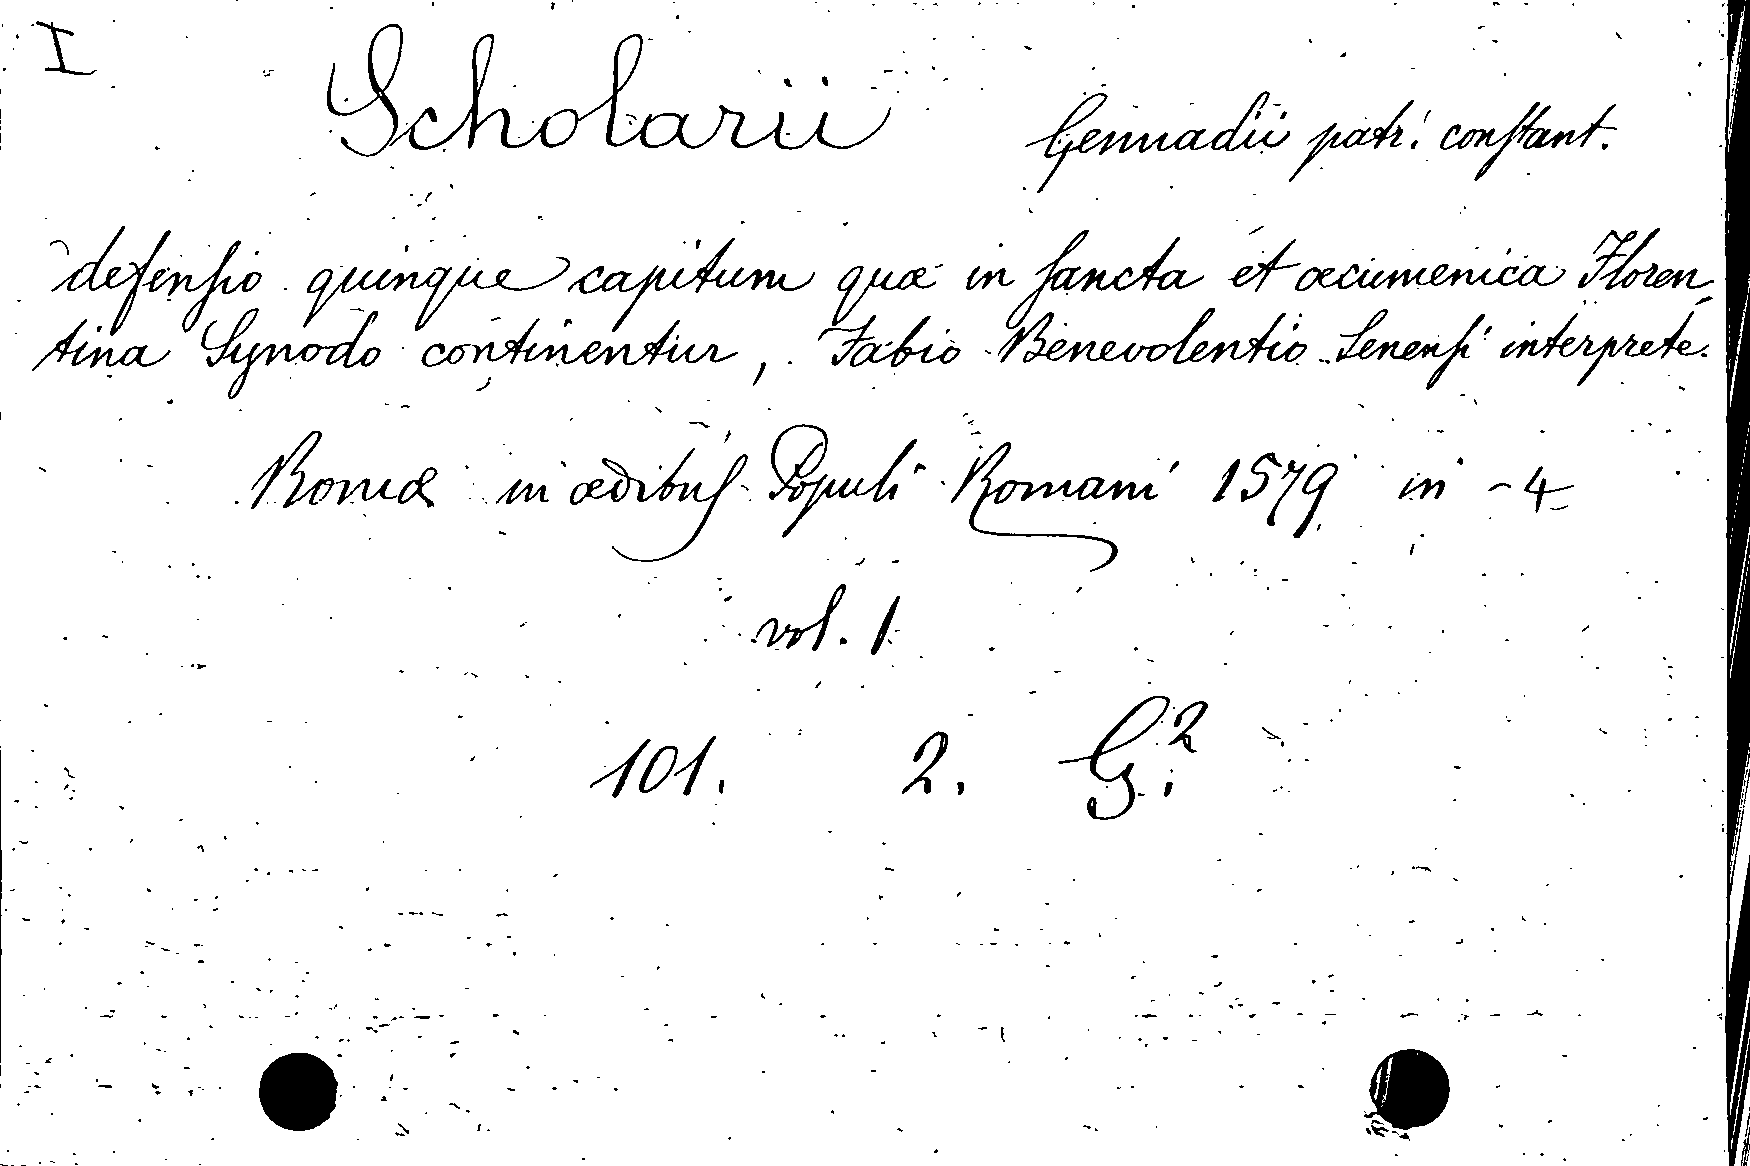 I
Scholarii Gennadii patr. constant.
defensio quinque capitum quæ in sancta et œcumenica Floren-
tina Synodo continentur, Fabio Benevolentio Senensi interprete.
Romæ in ædibus Populi Romani 1579 in-4
vol. 1
101. 2. G.²